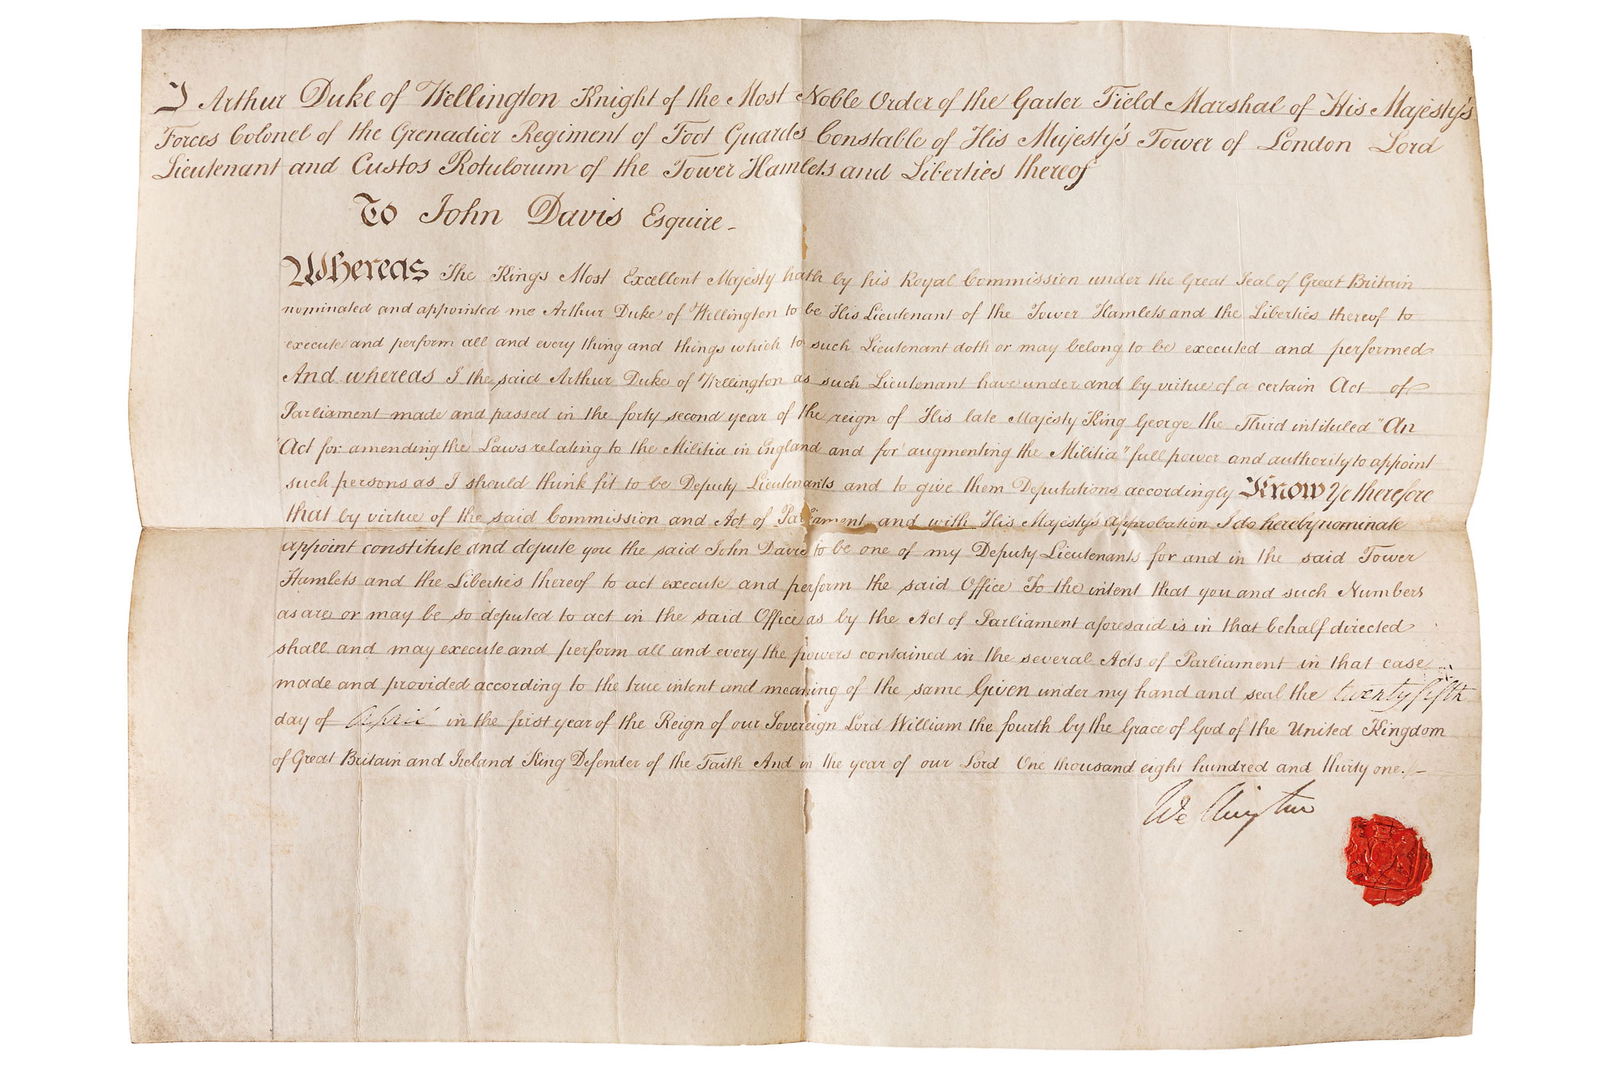 I Arthur Duke of Wellington Knight of the Most Noble Order of the Garter Field Marshal of His Majesty's
Forces Colonel of the Grenadier Regiment of Foot Guards Constable of His Majesty's Tower of London Lord
Lieutenant and Custos Rotulorum of the Tower Hamlets and Liberties thereof
To John Davis Esquire -
Whereas The Kings Most Excellent Majesty hath by his Royal Commission under the Great Seal of Great Britain
nominated and appointed me Arthur Duke of Wellington to be His Lieutenant of the Tower Hamlets and the Liberties thereof to
execute and perform all and every thing and things which to such Lieutenant doth or may belong to be executed and performed
And whereas I the said Arthur Duke of Wellington as such Lieutenant have under and by virtue of a certain Act of
Parliament made and passed in the forty second year of the reign of His late Majesty King George the Third intituled "An
"Act for amending the Laws relating to the Militia in England and for augmenting the Militia" full power and authority to appoint
such persons as I should think fit to be Deputy Lieutenants and to give them Deputations accordingly Know Ye therefore
that by virtue of the said Commission and Act of Parliament and with His Majesty's approbation I do hereby nominate
appoint constitute and depute you the said John Davis to be one of my Deputy Lieutenants for and in the said Tower
Hamlets and the Liberties thereof to act execute and perform the said Office To the intent that you and such Numbers
as are or may be so deputed to act in the said Office as by the Act of Parliament aforesaid is in that behalf directed
shall and may execute and perform all and every the powers contained in the several Acts of Parliament in that case
made and provided according to the true intent and meaning of the same Given under my hand and seal the twenty fifth
day of April in the first year of the Reign of our Sovereign Lord William the fourth by the Grace of God of the United Kingdom
of Great Britain and Ireland King Defender of the Faith And in the year of our Lord One thousand eight hundred and thirty one.
Wellington